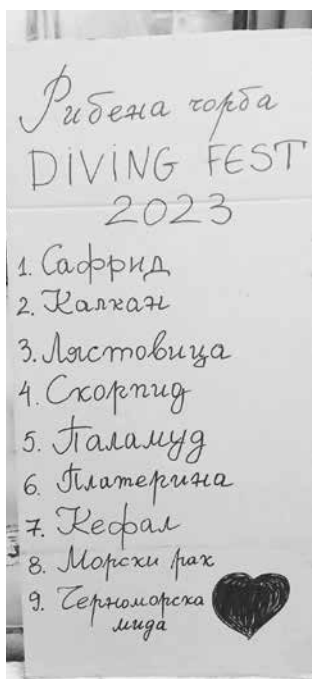 Рибена чорба
DIVING FEST
2023
1. Сафрид
2. Калкан
3. Лястовица
4. Скорпид
5. Паламуд
6. Платерина
7. Кефал
8. Морски рак
9. Черноморска
мида